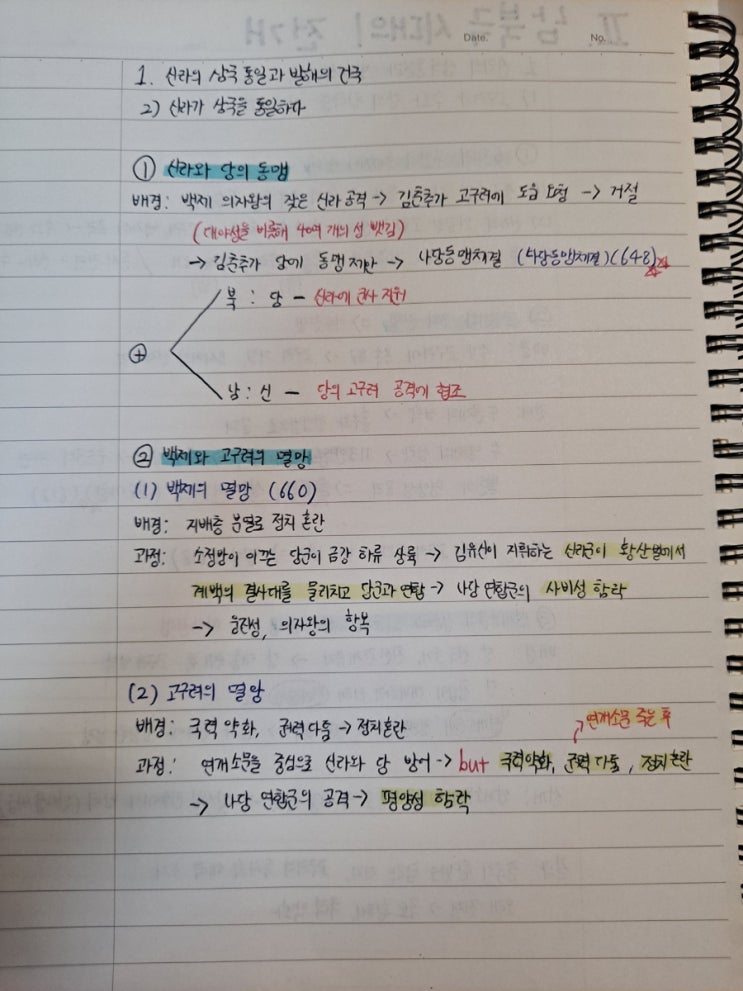 Date. No.
1. 신라의 삼국 통일과 발해의 건국
2) 신라가 삼국을 통일하다
① 신라와 당의 동맹
배경: 백제 의자왕의 잦은 신라 공격 → 김춘추가 고구려에 도움 요청 → 거절
(대야성을 비롯해 40여 개의 성 뺏김)
→ 김춘추가 당에 동맹 제안 → 나당동맹체결 (나당동맹체결)(648)
북: 당 - 신라에 군사 지원
+
남: 신 - 당의 고구려 공격에 협조
② 백제와 고구려의 멸망
(1) 백제의 멸망 (660)
배경: 지배층 분열로 정치 혼란
과정: 소정방이 이끄는 당군이 금강 하류 상륙 → 김유신이 지휘하는 신라군이 황산벌에서
계백의 결사대를 물리치고 당군과 연합 → 나당 연합군의 사비성 함락
→ 웅진성, 의자왕의 항복
(2) 고구려의 멸망
배경: 국력 약화, 권력 다툼 → 정치 혼란
연개소문 죽은 후
과정: 연개소문을 중심으로 신라와 당 방어 → but 국력약화, 권력 다툼, 정치 혼란
→ 나당 연합군의 공격 → 평양성 함락